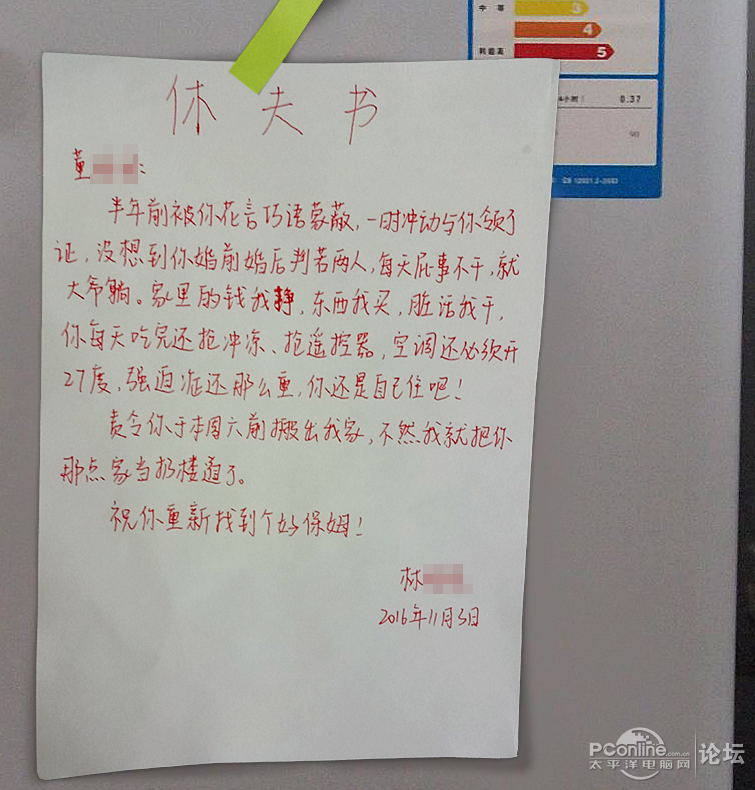 中等
3
4
耗能高
5
小时)
0.37
休夫书
董
:
半年前被你花言巧语蒙蔽,一时冲动与你领了
证,没想到你婚前婚后判若两人,每天屁事不干,就
大爷躺。家里的钱我挣,东西我买,脏活我干,
你每天吃完还抢冲凉、抢遥控器,空调还必须开
27度,强迫症还那么重,你还是自己住吧!
责令你于本周六前搬出我家,不然我就把你
那点家当扔楼道了。
祝你重新找到个好保姆!
林
2016年11月3日
PConline.com.cn
太平洋电脑网
论坛